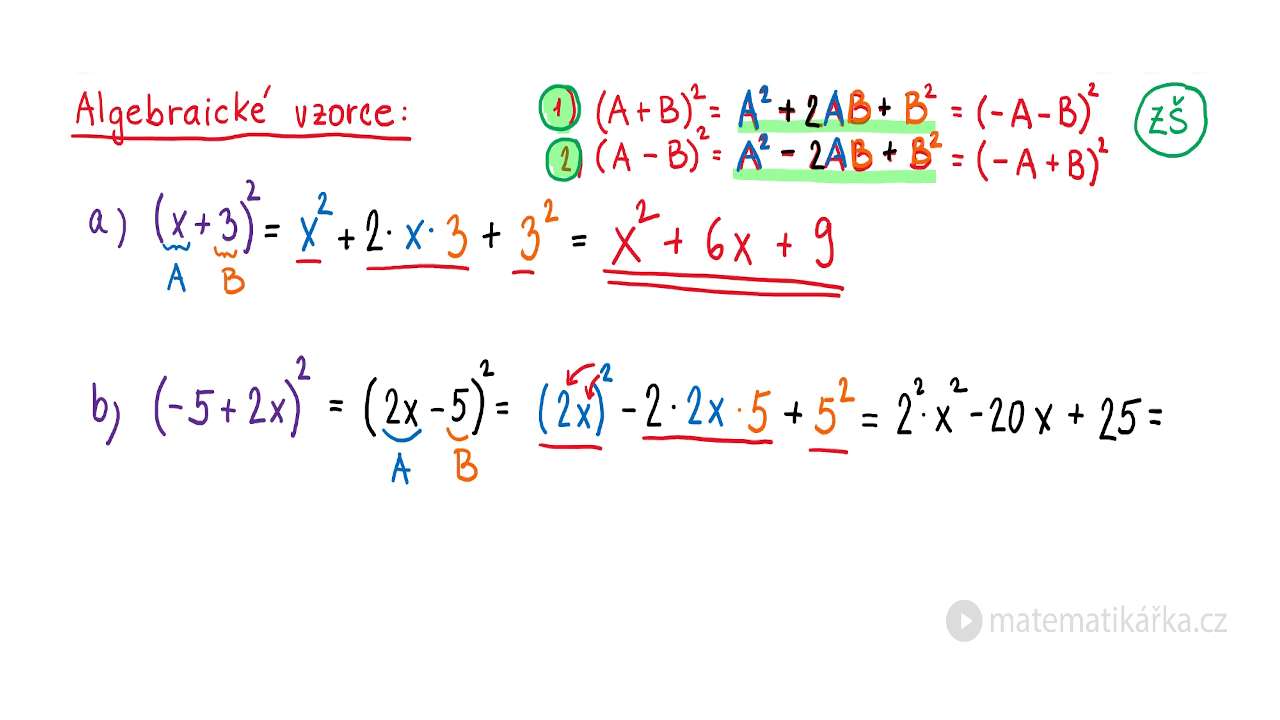 Algebraické vzorce:
1) (A + B)² = A² + 2AB + B² = (-A - B)²
ZŠ
2) (A - B)² = A² - 2AB + B² = (-A + B)²
a) (x + 3)² = x² + 2 · x · 3 + 3² = x² + 6x + 9
A B
b) (-5 + 2x)² = (2x - 5)² = (2x)² - 2 · 2x · 5 + 5² = 2² · x² - 20x + 25 =
A B
matematikářka.cz